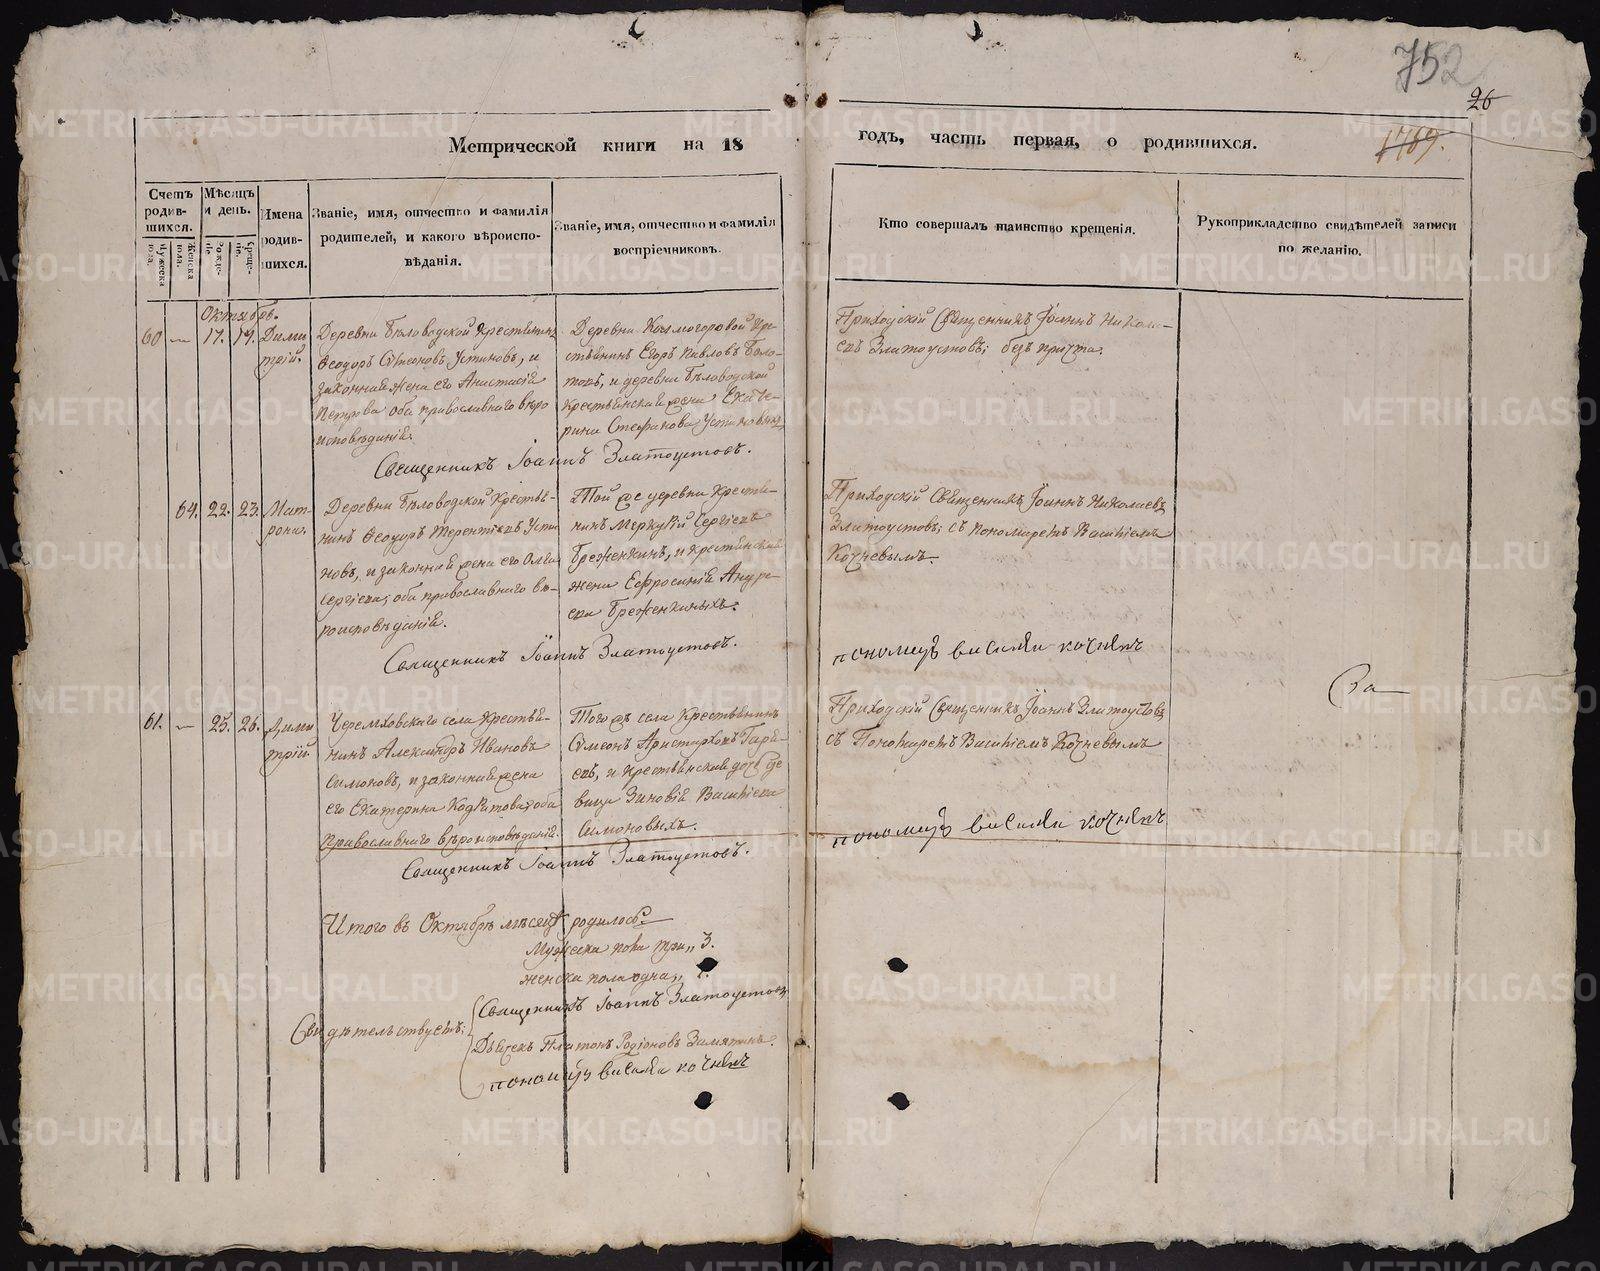 752
26
1789.
Метрической книги на 18 годъ, часть первая, о родившихся.
Счетъ родив-шихся.
Мужеска пола.
Женска пола.
Мѣсяцъ и день.
Рожде-нія.
Креще-нія.
Имена родив-шихся.
Званіе, имя, отчество и фамилія
родителей, и какого вѣроиспо-
вѣданія.
Званіе, имя, отчество и фамилія
воспріемниковъ.
Кто совершалъ таинство крещенія.
Рукоприкладство свидѣтелей записи
по желанію.
Октябрь.
60 — 17. 19. Дими
трій.
Деревни Бѣловодской крестьянинъ
Ѳеодоръ Сѵмеоновъ Устиновъ, и
законная жена его Анастасія
Петрова оба православнаго вѣро
исповѣданія.
Деревни Колмогоровой кре-
стьянинъ Егоръ Павловъ Боло-
товъ, и деревни Бѣловодской
крестьянская жена Екате-
рина Стефанова Устиновыхъ
Приходскій Священникъ Іоаннъ Никола-
евъ Златоустовъ; безъ причта.
Священникъ Іоаннъ Златоустовъ.
64. 22. 23. Мат-
рона.
Деревни Бѣловодской Крестья-
нинъ Ѳеодоръ Терентіевъ Усти
новъ, и законная жена его Ольга
Сергіева; оба православнаго вѣ-
роисповѣданія.
Той же деревни крестья-
нинъ Меркурій Сергіевъ
Бреженкинъ, и крестьянская
жена Ефросинія Андре-
ева Бреженкиныхъ.
Приходскій Священникъ Іоаннъ Николаевъ
Златоустовъ; съ пономаремъ Василіемъ
Кочневымъ.
Священникъ Іоаннъ Златоустовъ.
пономарь василіи кочневъ
За
61. — 25. 26. Дими
трій.
Черемховскаго села крестья-
нинъ Александръ Ивановъ
Симоновъ, и законная жена
его Екатерина Кодратова оба
православнаго вѣроисповѣданія.
Того жъ села Крестьянинъ
Сѵмеонъ Аристарховъ Гаре-
евъ, и крестьянская дочь де
вица Зиновія Василіева
Симоновыхъ.
Приходскій Священникъ Іоаннъ Златоустовъ
съ Пономаремъ Василіемъ Кочневымъ
пономарь василіи кочневъ
Священникъ Іоаннъ Златоустовъ.
Итого въ Октябрѣ мѣсяцѣ родилось
Мужеска пола три„ 3.
женска пола одна„ 1.
Свидѣтельствуетъ:
Священникъ Іоаннъ Златоустовъ
Дьячекъ Платонъ Родіоновъ Замятинъ.
пономарь василіи кочневъ
METRIKI.GASO-URAL.RU